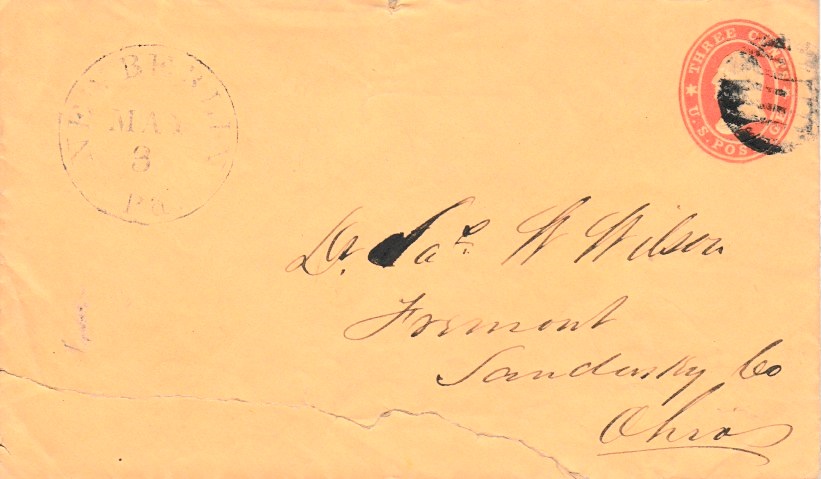 NEW BERLIN
MAY
8
Pa
THREE CENTS
U.S. POSTAGE
Dr. Jas. W Wilson
Fremont
Sandusky Co
Ohio